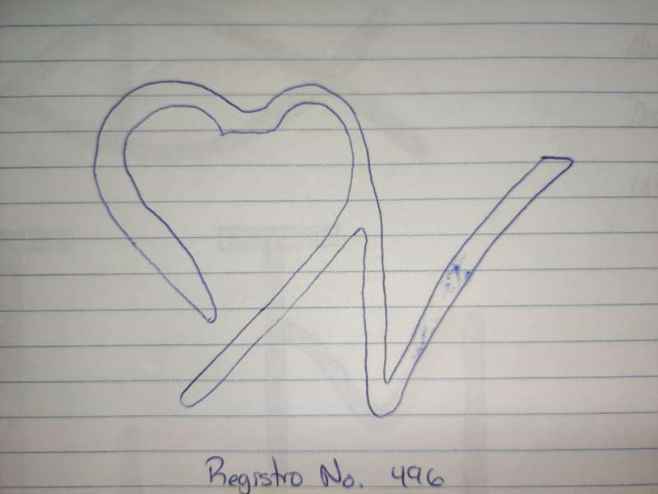 Registro No. 496